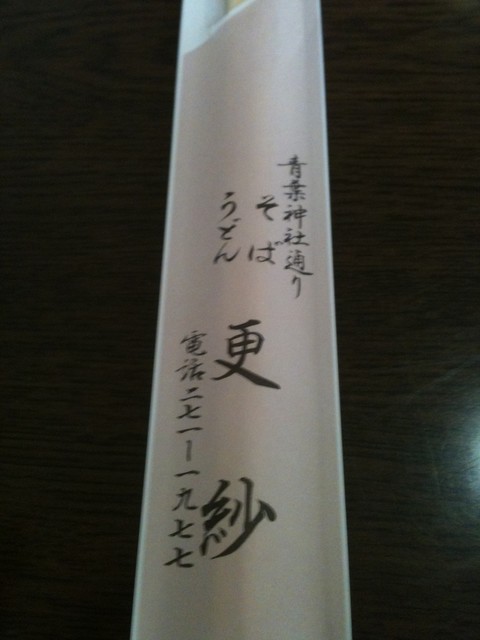 青葉神社通り
そば
うどん
更紗
電話二七一ー一九七七